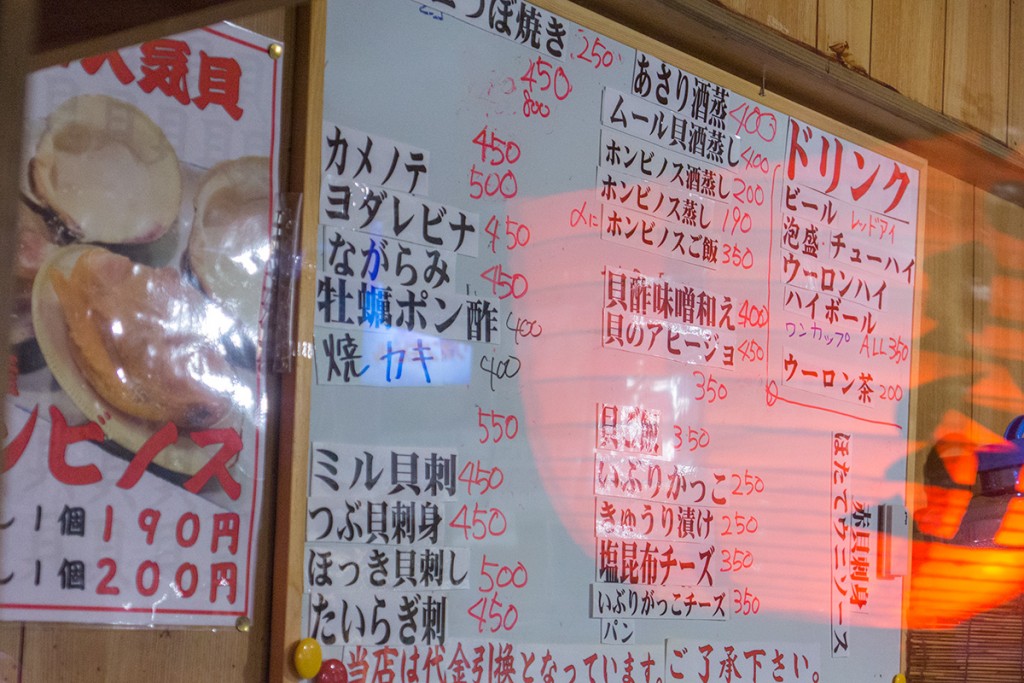 人気貝
ンビノス
し1個190円
し1個200円
つぼ焼き 250
450
800
450
カメノテ 500
ヨダレビナ 450
ながらみ 450
牡蠣ポン酢 400
焼カキ 400
550
ミル貝刺 450
つぶ貝刺身 450
ほっき貝刺し 500
たいらぎ刺 450
あさり酒蒸 400
ムール貝酒蒸し 400
ホンビノス酒蒸し 200
ホンビノス蒸し 190
ホンビノスご飯 350
貝酢味噌和え 400
貝のアヒージョ 450
350
350
いぶりがっこ 250
きゅうり漬け 250
塩昆布チーズ 350
いぶりがっこチーズ 350
パン
ドリンク
ビール レッドアイ
泡盛・チューハイ
ウーロンハイ
ハイボール
ワンカップ ALL350
ウーロン茶 200
赤貝刺身
ほたてウニソース
当店は代金引換となっています。ご了承下さい。